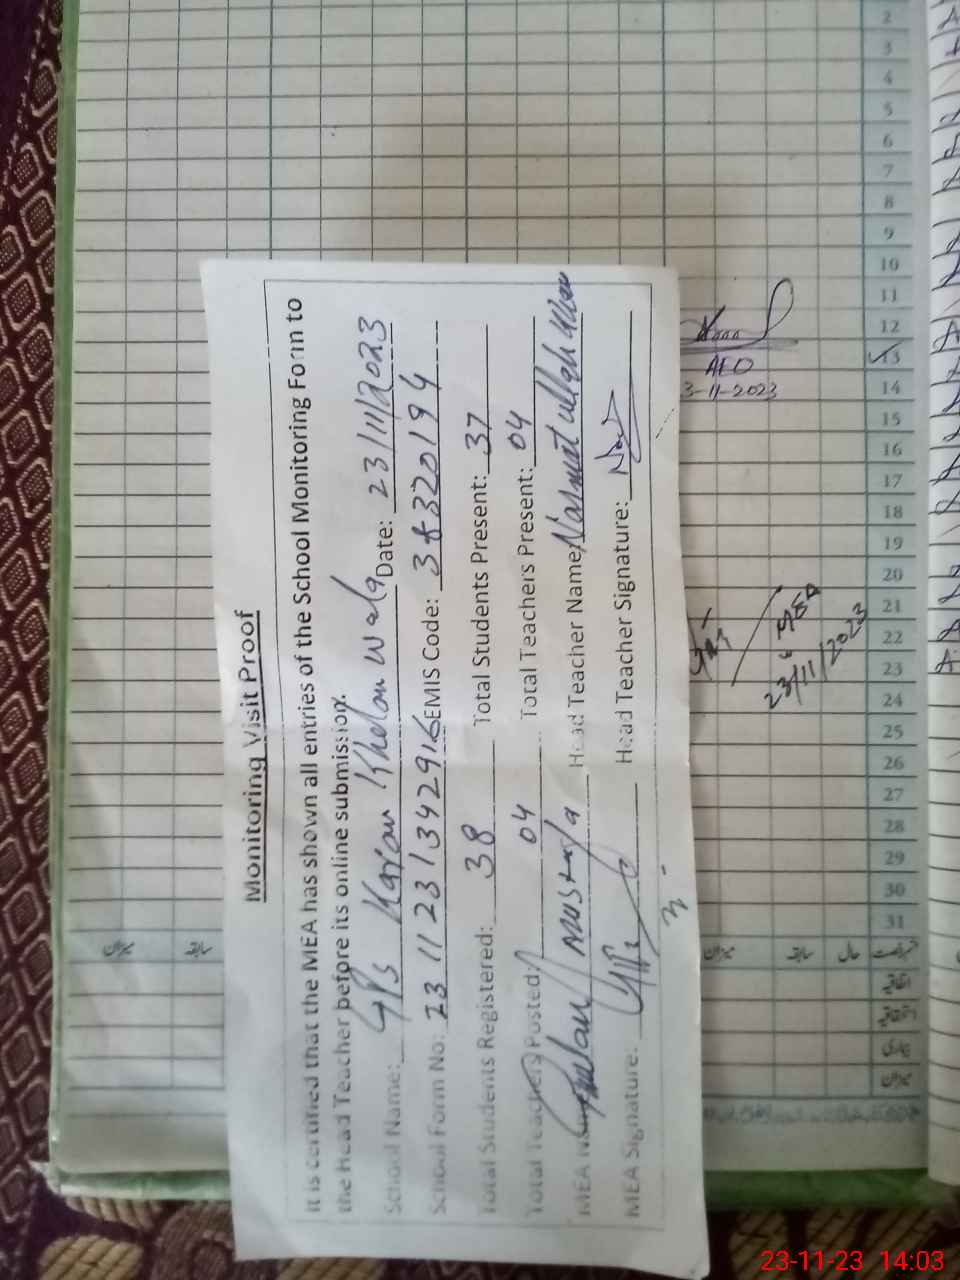 Monitoring Visit Proof
It is certified that the MEA has shown all entries of the School Monitoring Form to
the Head Teacher before its online submission.
School Name: GPS Karon Khelan wala Date: 23/11/2023
School Form No: 2311231342916 EMIS Code: 38320194
Total Students Registered: 38 Total Students Present: 37
Total Teachers Posted: 04 Total Teachers Present: 04
MEA Name: Mustafa Head Teacher Name:
MEA Signature: Head Teacher Signature:
AEO
3-11-2023
MEA
23/11/2023
2
3
4
5
6
7
8
9
10
11
12
13
14
15
16
17
18
19
20
21
22
23
24
25
26
27
28
29
30
31
میزان سابقہ
میزان سابقہ حال
میزان
23-11-23 14:03